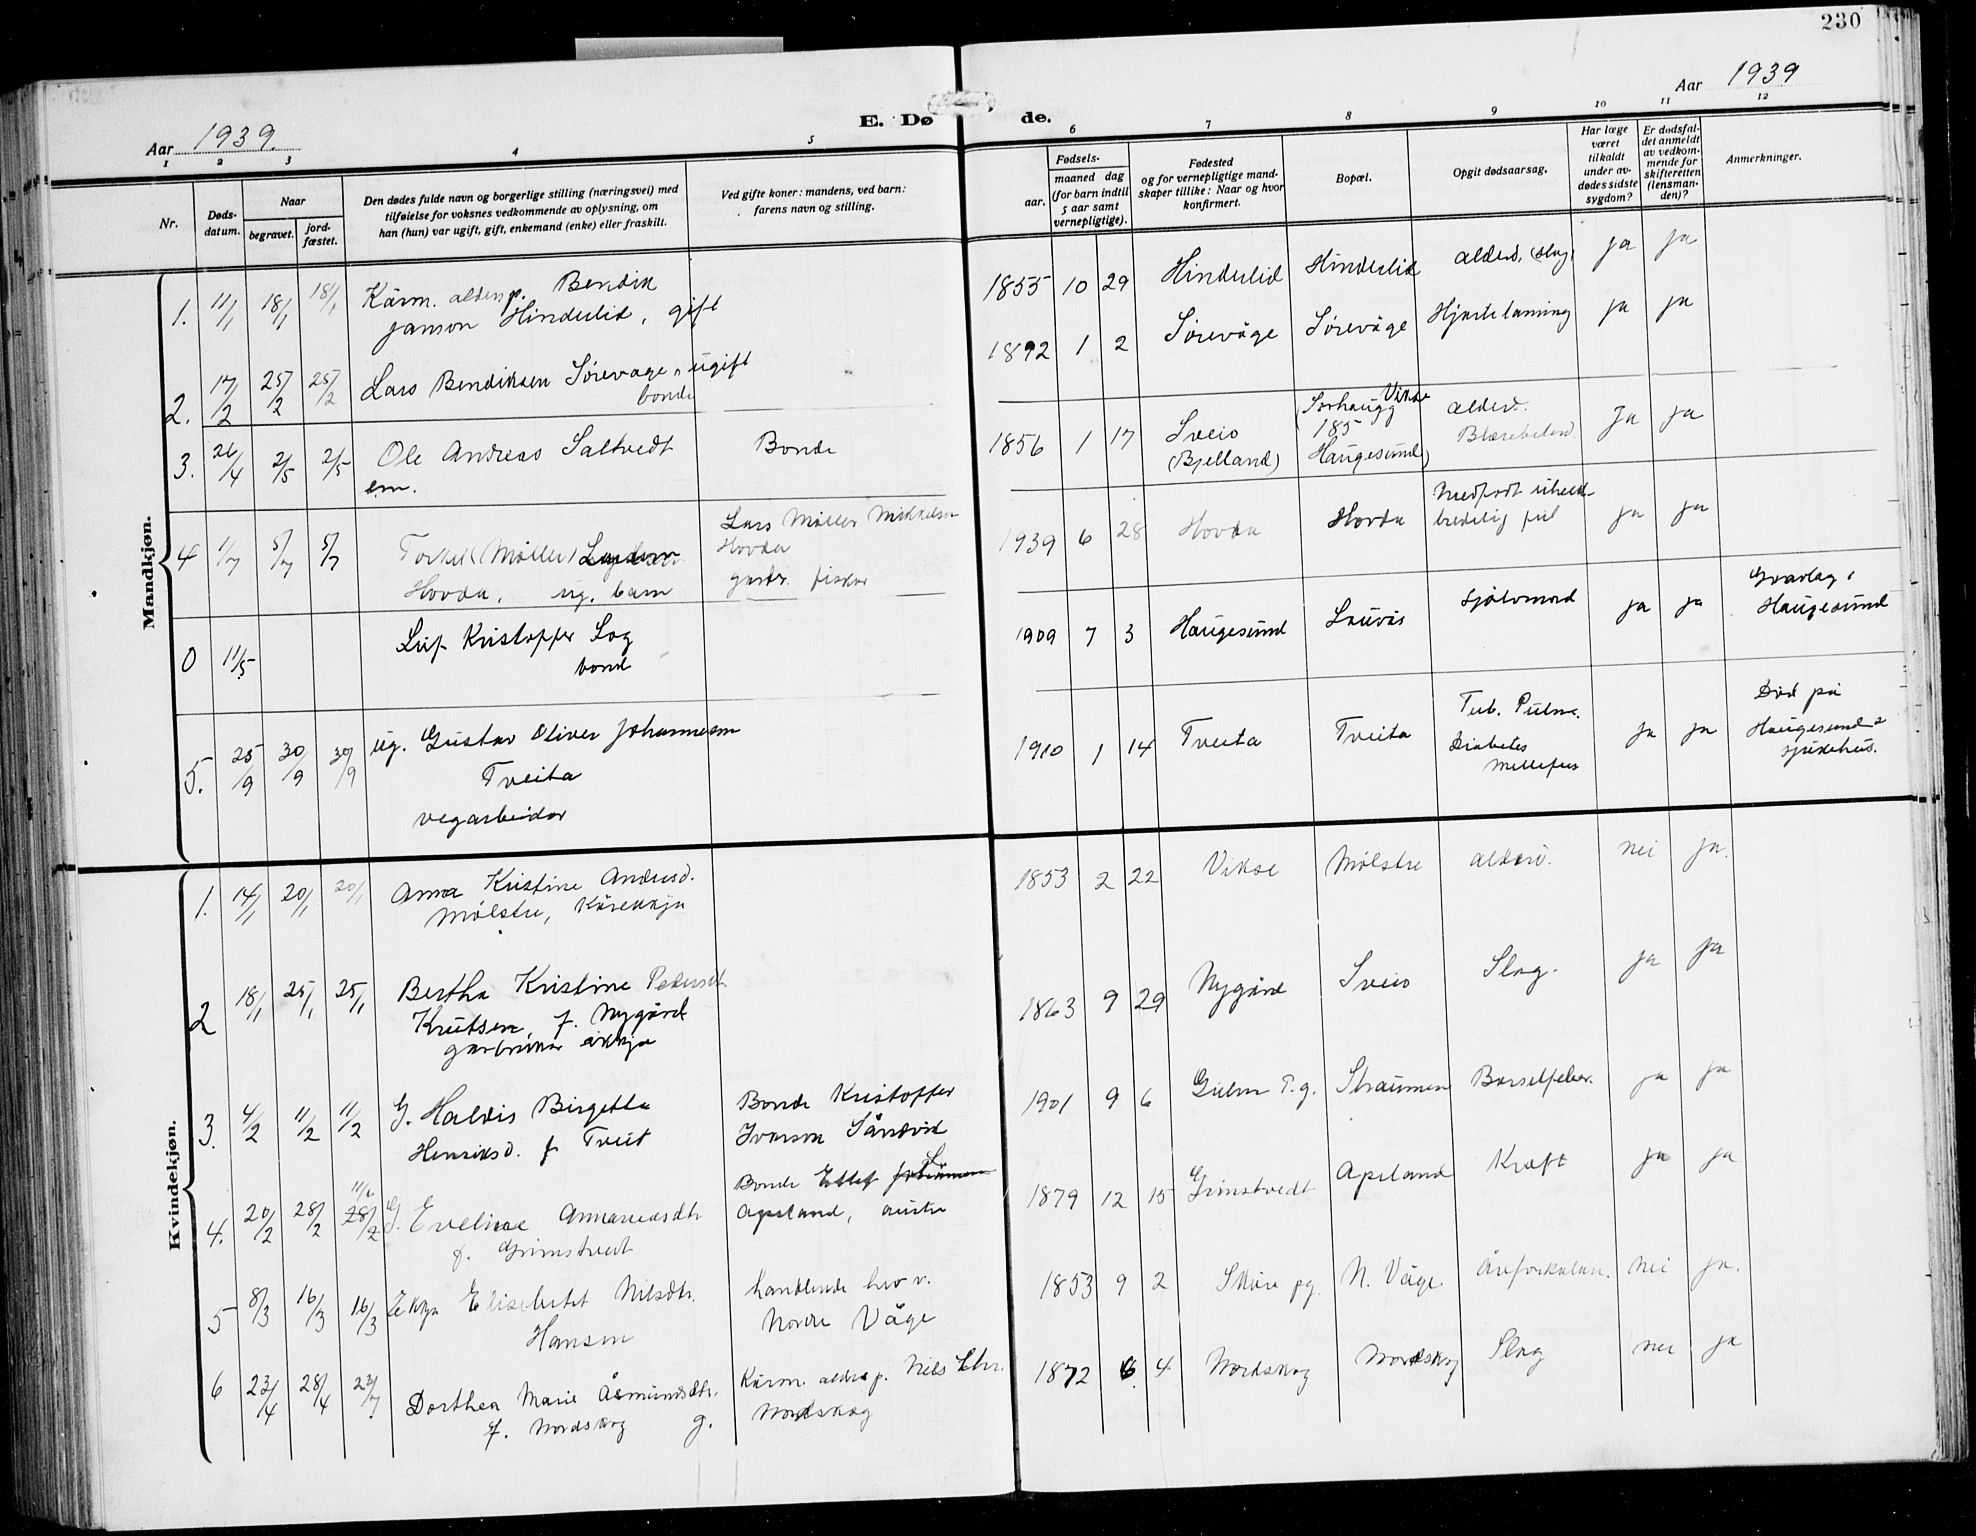 230
Aar 1939.
E. Dø de.
Aar 1939
1 2 3 4 5 6 7 8 9 10 11 12
Nr.
Døds-
datum.
Naar
begravet.
jord-
fæstet.
Den dødes fulde navn og borgerlige stilling (næringsvei) med
tilføielse for voksnes vedkommende av oplysning, om
han (hun) var ugift, gift, enkemand (enke) eller fraskilt.
Ved gifte koner: mandens, ved barn:
farens navn og stilling.
Fødsels-
aar.
maaned dag
(for barn indtil
5 aar samt
vernepligtige).
Fødested
og for vernepligtige mand-
skaper tillike: Naar og hvor
konfirmert.
Bopæl.
Opgit dødsaarsag.
Har læge
været
tilkaldt
under av-
dødes sidste
sygdom?
Er dødsfal-
det anmeldt
av vedkom-
mende for
skifteretten
(lensman-
den)?
Anmerkninger.
Mandkjøn.
1. 11/1 18/1 18/1 Kårm. aldersp. Bendik
Janson Hinderlid, gift
1855 10 29 Hinderlid Hinderlid alderd. (slag) ja ja
2. 17/2 25/2 25/2 Lars Bendiksen Sørevåge, ugift
bonde
1892 1 2 Sørevåge Sørevåge Hjarte ja ja
3. 26/4 2/5 2/5 Ole Andreas Saltvedt
em.
Bonde
1856 1 17 Sveio
(Bjelland)
(Sørhaugg Vikse
185
Haugesund)
alderd.
Ja ja
4 1/7 5/7 5/7 Torkel (Møller)
Hovda, ug. barn
Lars Møller Mikkelsen
Hovda
gardbr. fiskar
1939 6 28 Hovda Hovda Medfødt
ja ja
0 11/5 Leif Kristoffer Log
bonde
1909 7 3 Haugesund Lauvås sjølvmord ja ja Gravlag i
Haugesund
5. 25/9 30/9 30/9 ug. Gustav Oliver Johannesen
Tveita
vegarbeidar
1910 1 14 Tveita Tveita Tub. Pulm.
Diabetes
Mellitus
ja ja Död på
Haugesunds
sjukehus.
Kvindekjøn.
1. 14/1 20/1 20/1 Anna Kristine Andersd.
Mølstre, Kårekkja
1853 2 22 Vikse Mølstre alderd. nei ja.
2 18/1 25/1 25/1 Bertha Kristine Pedersdt.
Knutsen, f. Nygård
gardbrukar ekkja
1863 9 29 Nygård Sveio Slag. ja ja
3. 4/2 11/2 11/2 G. Haldis Birgetta
Henriksd. f Tveit
Bonde Kristoffer
Ivarson Sandvik
1901 9 6 P. g. Straumen Barselfeber. ja ja
4. 20/2 28/2 28/2 11/6 G. Eveline Annaniasdtr
f. Grimstvedt
Bonde
Apeland, austre
1879 12 15 Grimstvedt Apeland Kræft ja ja
5 8/3 16/3 16/3 Ekkja Elisebetet Nilsdtr.
Hansen
handlende
Nordre Våge
1853 9 2 Skåre pg. N. Våge Åreforkalkn. nei ja.
6 23/4 28/4 23/7 Dorthea Marie Åsmundsdtr.
f. Nordskog g.
Kårm. aldersp. Nils Chr.
Nordskog
1872 6 4 Nordskog Nordskog Slag nei ja